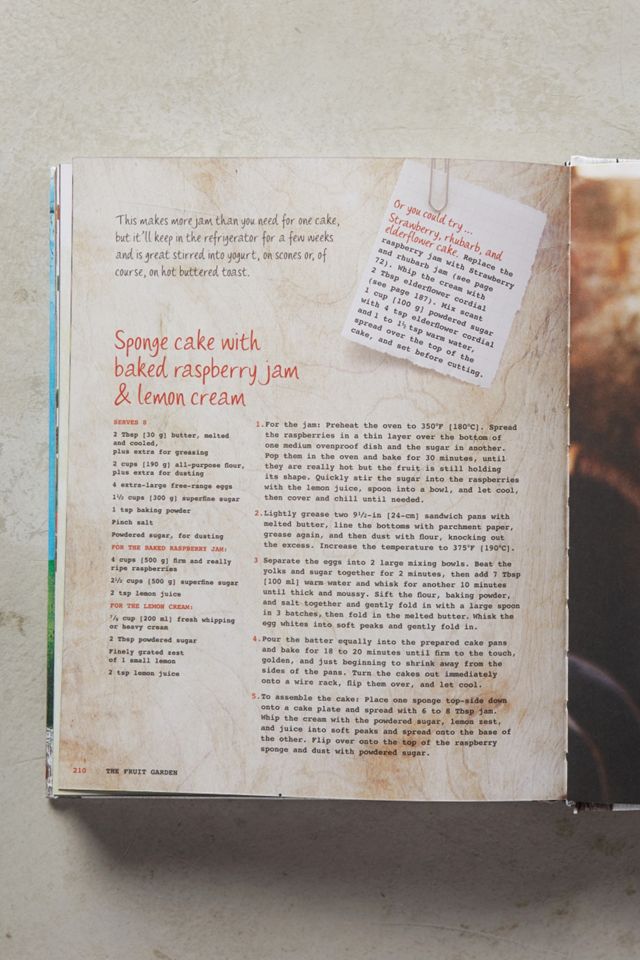 This makes more jam than you need for one cake,
but it'll keep in the refrigerator for a few weeks
and is great stirred into yogurt, on scones or, of
course, on hot buttered toast.
Or you could try ...
Strawberry, rhubarb, and
elderflower cake. Replace the
raspberry jam with Strawberry
and rhubarb jam (see page
72). Whip the cream with
2 Tbsp elderflower cordial
(see page 187). Mix scant
1 cup [100 g] powdered sugar
with 4 tsp elderflower cordial
and 1 to 1½ tsp warm water,
spread over the top of the
cake, and set before cutting.
Sponge cake with
baked raspberry jam
& lemon cream
SERVES 8
2 Tbsp [30 g] butter, melted
and cooled,
plus extra for greasing
2 cups [190 g] all-purpose flour,
plus extra for dusting
4 extra-large free-range eggs
1½ cups [300 g] superfine sugar
1 tsp baking powder
Pinch salt
Powdered sugar, for dusting
FOR THE BAKED RASPBERRY JAM:
4 cups [500 g] firm and really
ripe raspberries
2½ cups [500 g] superfine sugar
2 tsp lemon juice
FOR THE LEMON CREAM:
⅞ cup [200 ml] fresh whipping
or heavy cream
2 Tbsp powdered sugar
Finely grated zest
of 1 small lemon
2 tsp lemon juice
1. For the jam: Preheat the oven to 350°F [180°C]. Spread
the raspberries in a thin layer over the bottom of
one medium ovenproof dish and the sugar in another.
Pop them in the oven and bake for 30 minutes, until
they are really hot but the fruit is still holding
its shape. Quickly stir the sugar into the raspberries
with the lemon juice, spoon into a bowl, and let cool,
then cover and chill until needed.
2. Lightly grease two 9½-in [24-cm] sandwich pans with
melted butter, line the bottoms with parchment paper,
grease again, and then dust with flour, knocking out
the excess. Increase the temperature to 375°F [190°C].
3 Separate the eggs into 2 large mixing bowls. Beat the
yolks and sugar together for 2 minutes, then add 7 Tbsp
[100 ml] warm water and whisk for another 10 minutes
until thick and moussy. Sift the flour, baking powder,
and salt together and gently fold in with a large spoon
in 3 batches, then fold in the melted butter. Whisk the
egg whites into soft peaks and gently fold in.
4. Pour the batter equally into the prepared cake pans
and bake for 18 to 20 minutes until firm to the touch,
golden, and just beginning to shrink away from the
sides of the pans. Turn the cakes out immediately
onto a wire rack, flip them over, and let cool.
5. To assemble the cake: Place one sponge top-side down
onto a cake plate and spread with 6 to 8 Tbsp jam.
Whip the cream with the powdered sugar, lemon zest,
and juice into soft peaks and spread onto the base of
the other. Flip over onto the top of the raspberry
sponge and dust with powdered sugar.
210 THE FRUIT GARDEN